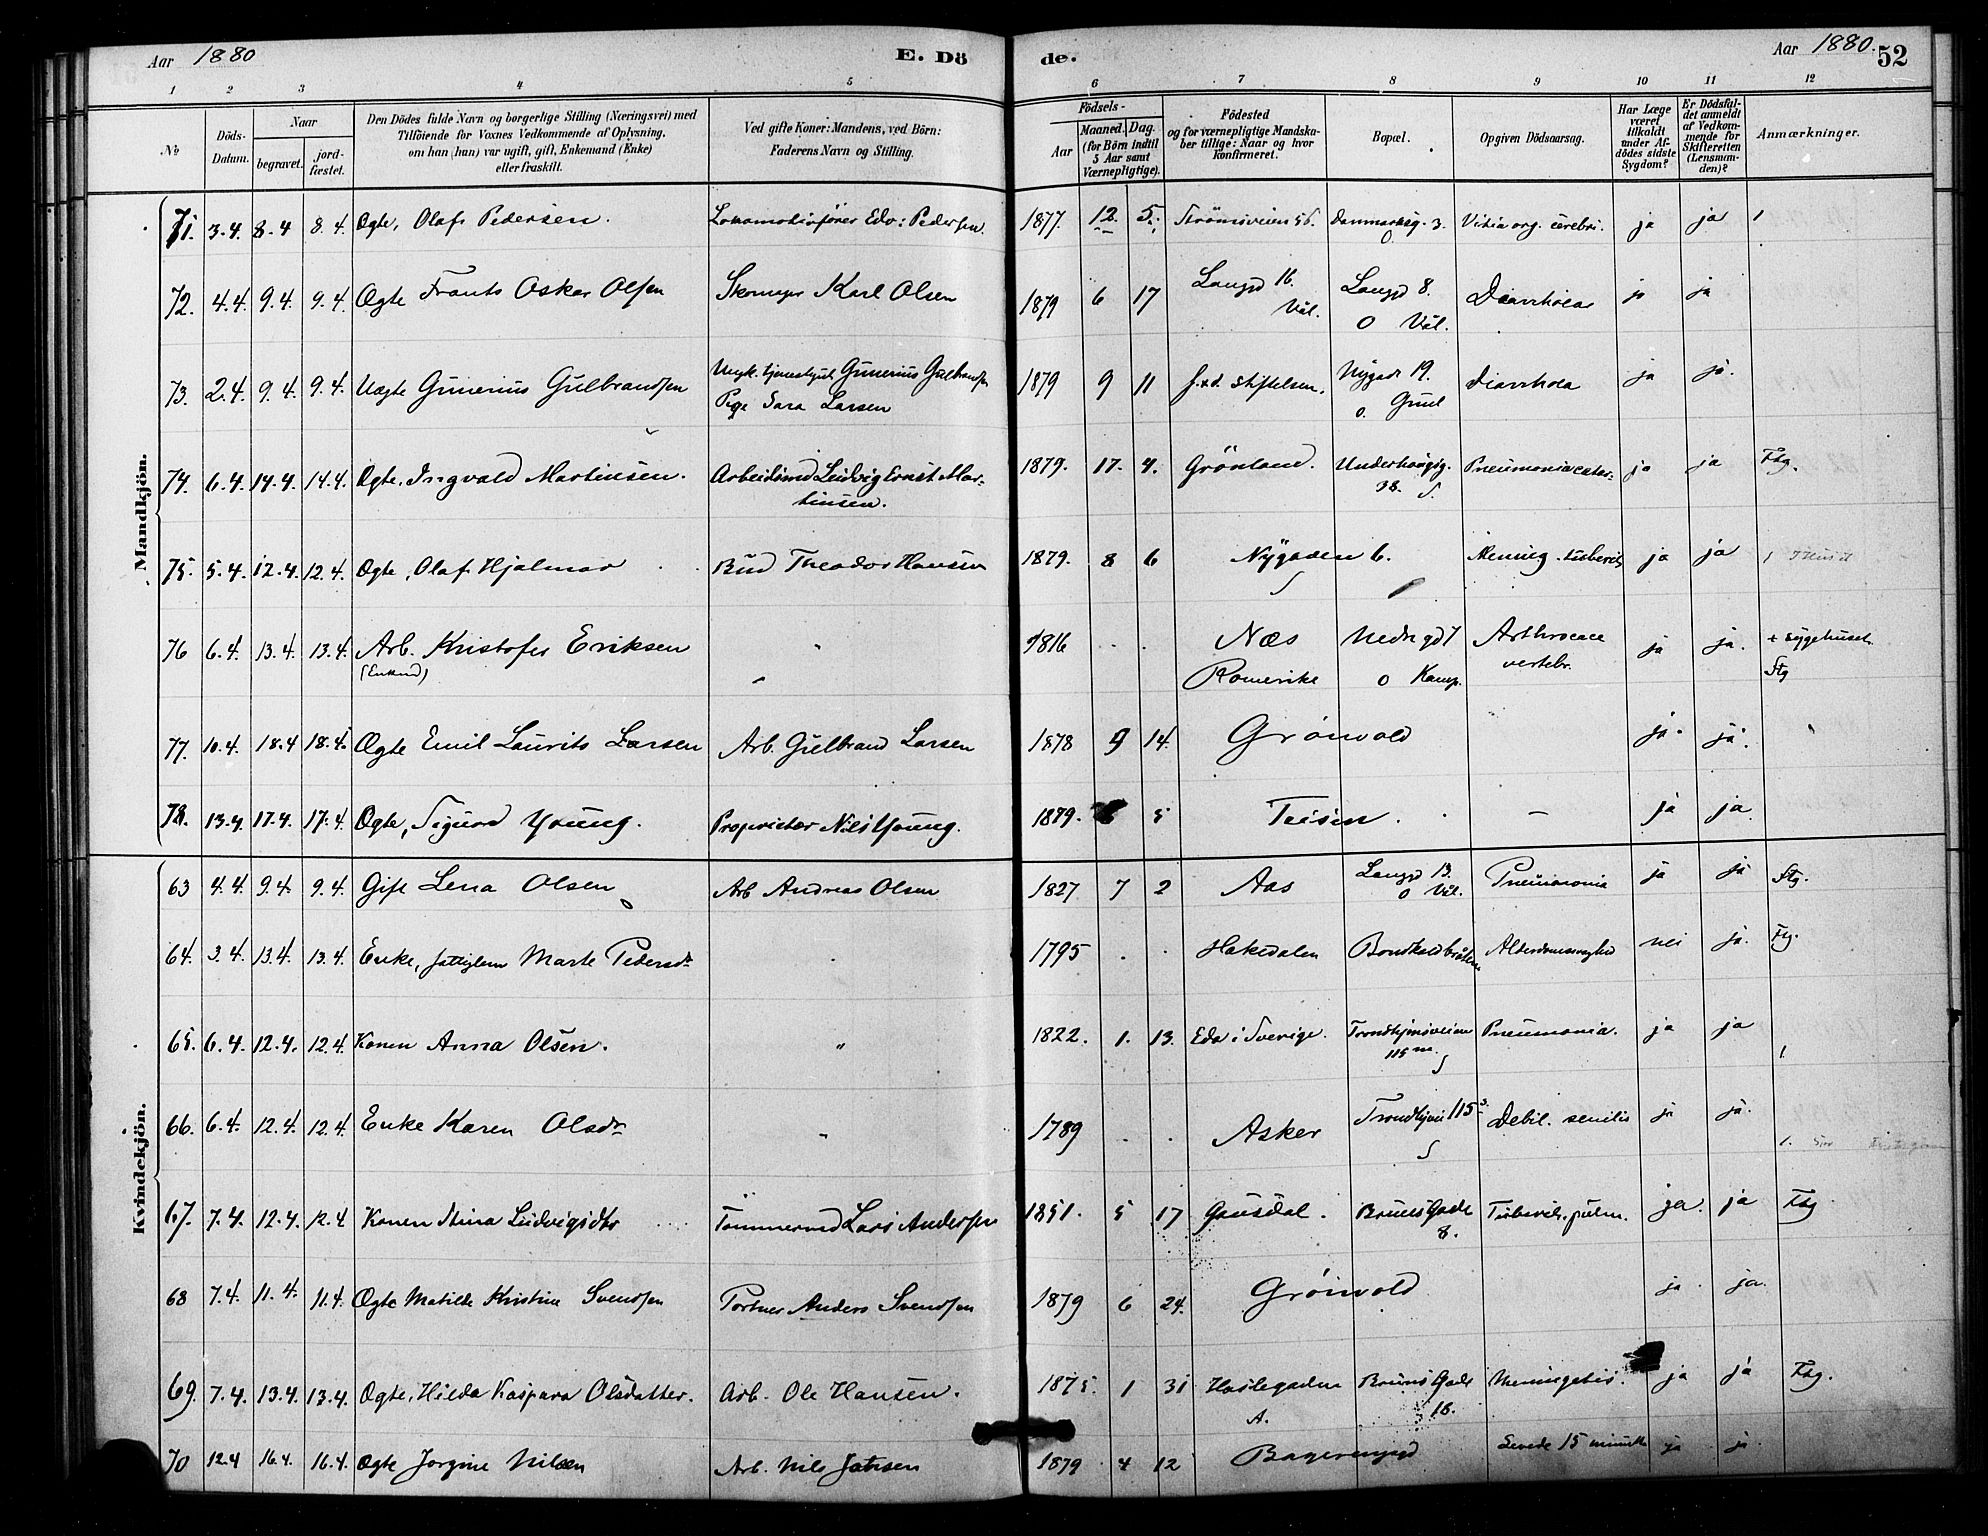 Aar 1880 E. Dö de. Aar 1880. 52
1 2 3 4 5 6 7 8 9 10 11 12
№ Döds-Datum. Naar begravet. jord-fæstet. Den Dödes fulde Navn og borgerlige Stilling (Næringsvei) med Tilföiende for Voxnes Vedkommende af Oplysning, om han (hun) var ugift, gift, Enkemand (Enke) eller fraskilt. Ved gifte Koner: Mandens, ved Börn: Faderens Navn og Stilling. Födsels- Aar Maaned. Dag. (for Börn indtil 5 Aar samt Værnepligtige). Födested og for værnepligtige Mandska-ber tillige: Naar og hvor Konfirmeret. Bopæl. Opgiven Dödsaarsag. Har Læge været tilkaldt under Af-dödes sidste Sygdom? Er Dödsfal-det anmeldt af Vedkom-mende for Skifteretten (Lensman-den)? Anmærkninger.
Mandkjön.
71. 3.4. 8.4 8.4. Ægte, Olaf Pedersen. Lokomotivförer Edv: Pedersen. 1877. 12. 5. Strömsveien 56. Danmarksg. 3. Vitia org. cerebri. ja ja
72. 4.4. 9.4. 9.4. Ægte Frants Oskar Olsen Karl Olsen 1879 6 17 Langgd 16. Vål. Langgd 8. O Vål. Diarrhoea ja ja
73. 2.4. 9.4. 9.4. Uægte Gunerius Gulbrandsen Ungk. Gunerius Gulbrandsen
Pige Sara Larsen 1879 9 11 f.x.d. Stiftelsen. Nygade 19. o. Diarrhoea ja ja.
74. 6.4. 14.4. 14.4. Ægte, Ingvald Martinsen. Arbeidsmd Ludvig Ernst Mar-
tinsen. 1879. 17. 4. Grönland. Underhougsg. 38. S. Pneumonia catar. ja ja Ftg.
75. 5.4. 12.4. 12.4. Ægte, Olaf Hjalmar Bud Theodor Hansen 1879. 8 6 Nygaden 6. S Mening. tubercl. ja ja
76 6.4. 13.4. 13.4. Arb. Kristofer Eriksen
(Enkmd) " 1816 . . Næs
Romerike Nedregd 7
O Kamp. Arthrocace
vertebr. ja ja. + Sygehuset.
Ftg
77. 10.4. 18.4 18.4. Ægte Emil Laurits Larsen Arb. Gulbrand Larsen 1878 9 14. Grönvold ja. ja.
78. 13.4. 17.4. 17.4. Ægte, Sigurd Young. Proprietær Nils Young. 1879. 5 Teisen. — ja ja.
Kvindekjön.
63 4.4. 9.4. 9.4. Gift Lena Olsen Arb Andreas Olsen 1827 7 2 Aas Langgd 13. O Vål. Pneumonia ja ja Ftg.
64. 3.4. 13.4. 13.4. Enke, fattiglem Marte Pedersdr 1795 . . Hakedalen Alderdomssvaghed nei ja. Ftg.
65. 6.4. 12.4. 12.4. Konen Anna Olsen. " 1822. 1. 13. Eda i Sverige. Trondhjemsveien
115 m. S Pneumonia. ja ja
66. 6.4. 12.4. 12.4. Enke Karen Olsdr " 1789 . . Asker Trondhjvei 115
S Debil. senilis ja ja.
67. 7.4. 12.4. 12.4 Konen Stina Ludvigsdtr Tömmermd Lars Andersen 1851. 5 17 Gausdal. Bruns Gade
8. Tubercl. pulm. ja. ja Ftg
68 7.4. 11.4. 11.4. Ægte Matilde Kristine Svendsen Portner Anders Svendsen 1879 6 24. Grönvold ja. ja.
69. 7.4. 13.4. 13.4. Ægte, Hilda Kaspara Olsdatter. Arb. Ole Hansen. 1875. 1 31 Haslegaden
A. Bruns Gade
18. Meningitis. ja ja Ftg.
70 12.4 16.4. 16.4. Ægte Jorgine Nilsen Arb. Nils Jansen 1879 4 12 Levede 15 minutter ja ja.